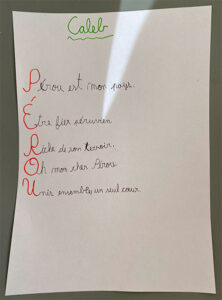 Caleb
Pérou est mon pays.
Être fier péruvien
Riche de son terroir,
Oh mon cher Pérou
Unis ensemble, un seul cœur.